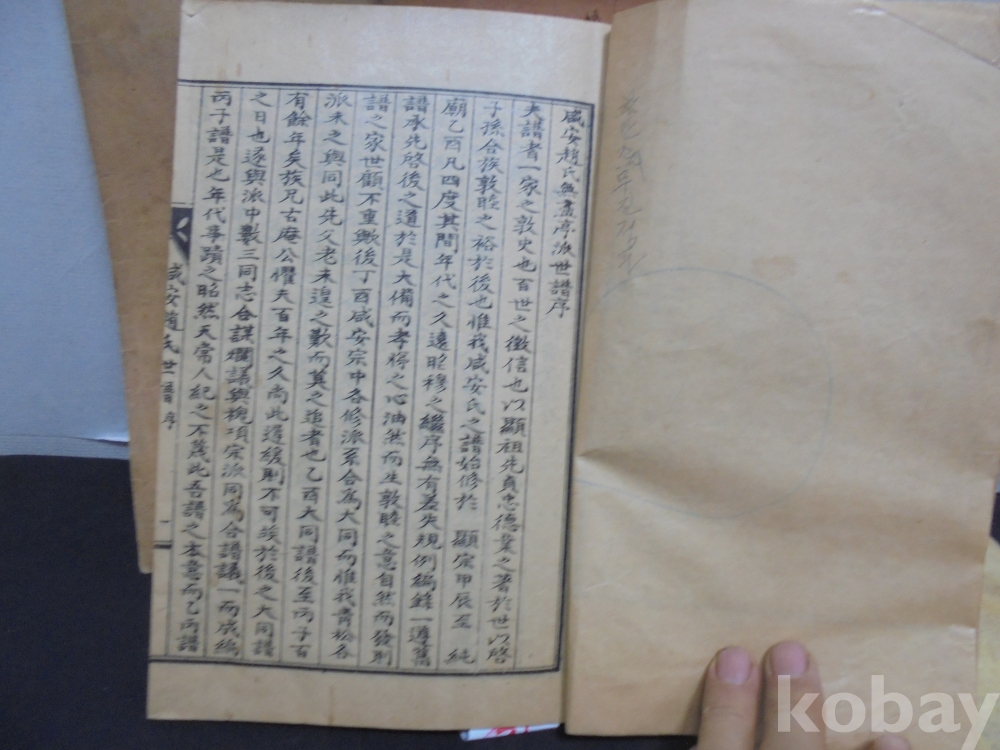 咸安趙氏無盡亭派世譜序
夫譜者一家之敦史也百世之徵信也以顯祖先貞忠德業之著於世以啓
子孫合族敦睦之裕於後也惟我咸安氏之譜始修於 顯宗甲辰至 純
廟乙酉凡四度其間年代之久遠昭穆之繼序無有差失規例編錄一遵舊
譜承先啓後之道於是大備而孝悌之心油然而生敦睦之意自然而發則
譜之家世顧不重歟後丁酉咸安宗中各修派系合爲大同而惟我靑松各
派未之與同此先父老未遑之歎而莫之追者也乙酉大同譜後至丙子百
有餘年矣族兄古庵公懼夫百年之久尚此遲緩則不可俟於後之大同譜
之日也遂與派中數三同志合謀爛議與槐項宗派同爲合譜議一而成編
丙子譜是也年代事蹟之昭然天常人紀之不蔑此吾譜之本意而乙丙譜
咸安趙氏世譜序
一
kobay